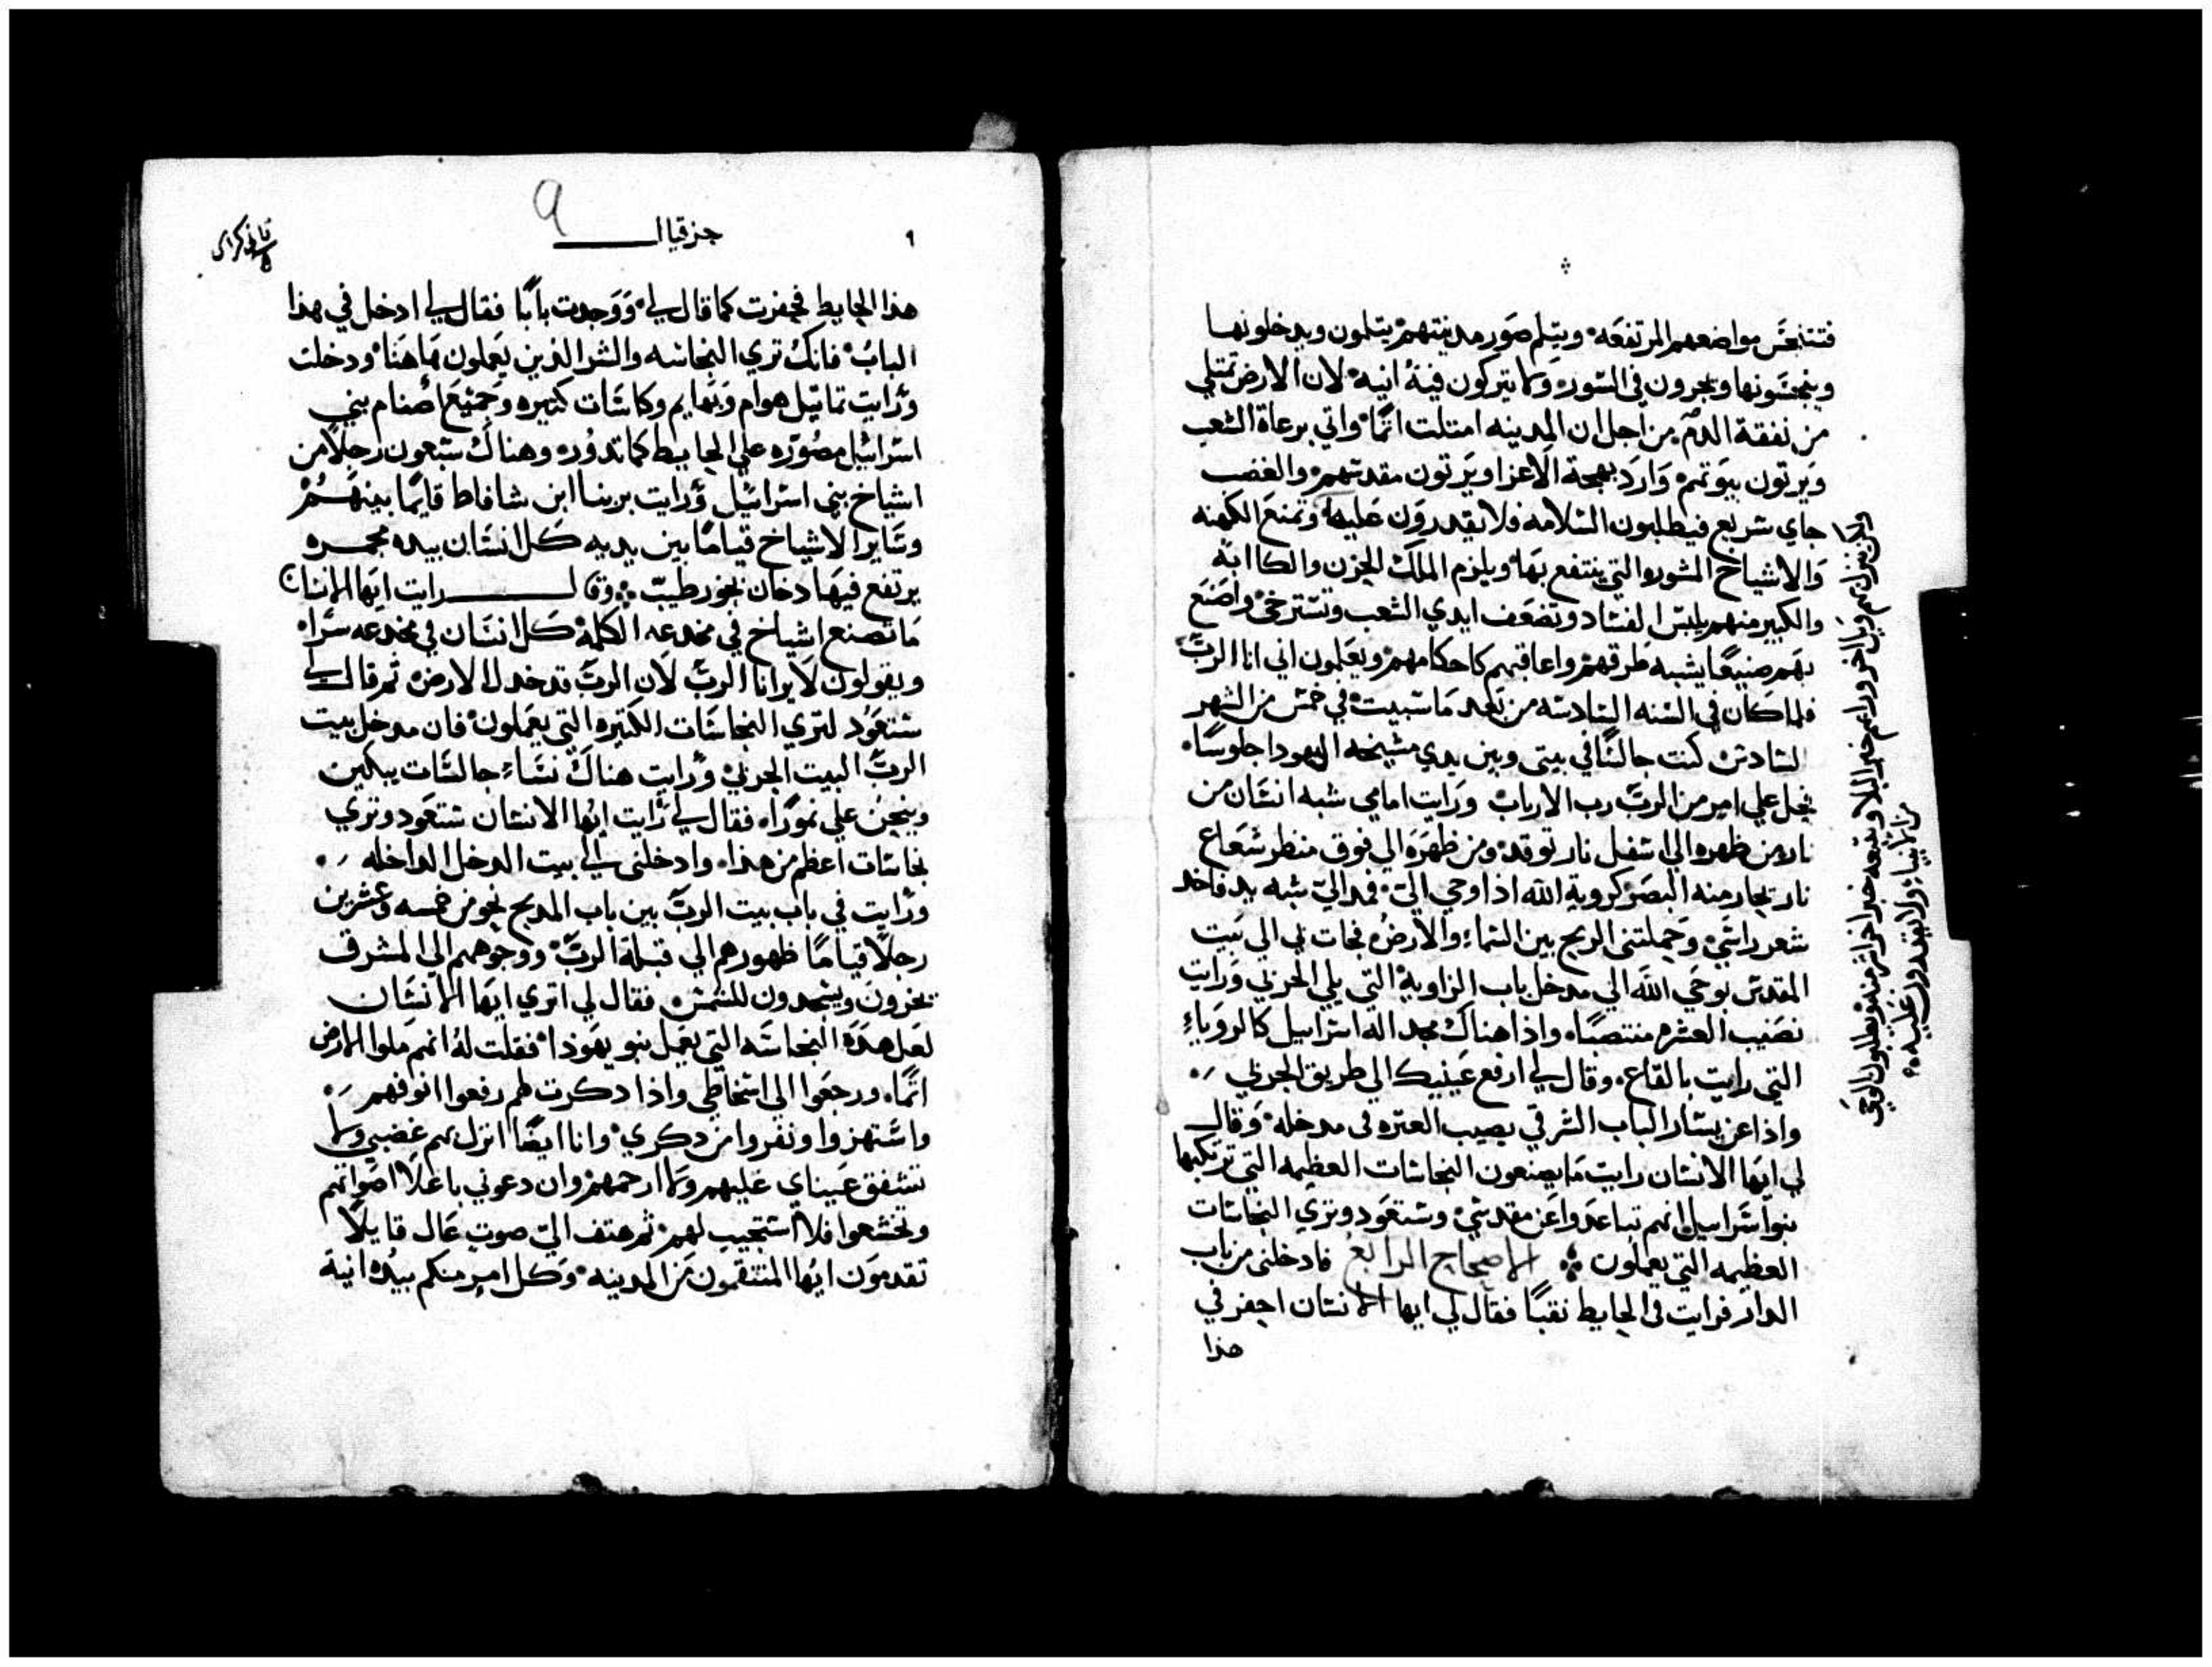 فتتنجس مواضعهم المرتفعه ويتلم صور مدينتهم يتلمون ويدخلونها
وينجسونها ويجرون في السوره ولا يتركون فيه انيه لان الارض تمتلي
من نفقة الدم من اجل ان المدينه امتلت اثما واتي برعاة الشعب
ويرتون بيوتهم وارد بهجة الاعزا ويرتون مقدسهم والغضب
جاي سريع فيطلبون السلامه فلا يقدرون عليها وتمنع الكهنه
والاشياخ المشوره التي ينتفع بها ويلزم الملك الحزن والكاابه
والكبير منهم يلبس الفساد وتضعف ايدي الشعب وتسترخي واصنع
بهم صنيعا يشبه طرقهم واعاقبهم كاحكامهم ويعلمون اني انا الرب
فلما كان في السنه السادسه من بعد ما سبيت في خمس من الشهر
السادس كنت جالسا في بيتي وبين يدي مشيخه اليهودا جلوسا
فحل علي امر من الرب رب الارباب ورايت امامي شبه انسان من
نار من ظهره الي اسفل نار توقد ومن ظهره الي فوق منظر شعاع
نار تحار منه البصر كروية الله اذا وحي الي فمد الي شبه يد فاخد
شعر راسي وحملتني الريح بين السما والارض فجات بي الي بيت
المقدس بوحي الله الي مدخل باب الزاوية التي يلي الجربي ورايت
نصيب العشره منتصبا واذا هناك مجد اله اسراييل كالروياء
التي رايت بالقاع وقال لي ارفع عينيك الي طريق الجربي
واذا عن يسار الباب الشرقي بصيب العتره في مدخله وقال
لي ايها الانسان رايت ما يصنعون النجاسات العظيمه التي ترتكبها
بنو اسراييل انهم تباعدوا عن مقدسي وستعود وتري النجاسات
العظيمه التي يعملون الاصحاح الرابع فادخلني من باب
الدار فرايت في الحايط نقبا فقال لي ايها الانسان احفر في
هذا
ينزل بهم ويل اخر ورايهم خبر البلا ويتبعه خبر اخر اشر منه ويطلبون الوحي
من الانبياء ولا يقدرون عليه
٩
حزقيال
٩
ثاني كراس
هذا الحايط فحفرت كما قال لي ووجدت بابا فقال لي ادخل في هذا
الباب فانك تري النجاسه والشر الذين يعملون هاهنا ودخلت
ورايت تماتيل هوام وبهايم وكاسات كتيره وجميع اصنام بني
اسراييل مصوره علي الحايط كما تدوره وهناك سبعون رجلا من
اشياخ بني اسراييل ورايت برينا ابن شافاط قايما بينهم
وساير الاشياخ قياما بين يديه كل انسان بيده مجمره
يرتفع فيها دخان بخور طيب وقال رايت ايها الانسان
ما تصنع اشياخ في مخدعه الكلمة كل انسان في مخدعه سرا
ويقولون لا يرانا الرب لان الرب قد خدل الارض تم قال لي
ستعود لتري النجاسات الكتيره التي يعملون فان مدخل بيت
الرب البيت الجربي ورايت هناك نساء جالسات يبكين
وينحن علي تموزا فقال لي رايت ايها الانسان ستعود وتري
نجاسات اعظم من هذا وادخلني الي بيت الدخل الداخله
ورايت في باب بيت الرب بين باب المدبح نحو من خمسه وعشرين
رجلا قياما ظهورهم الي قبلة الرب ووجوههم الي المشرق
يخرون ويسجدون للشمس فقال لي اتري ايها الانسان
لعل هذه النجاسه التي يعمل بنو يهوذا فقلت له انهم ملوا الارض
اثما ورجعوا الي اسخاطي واذا دكرت لهم رفعوا انوفهم
واستهزوا ونفروا من دكري وانا ايضا انزل بهم غضبي ولا
تشفق عيناي عليهم ولا ارحمهم وان دعوني باعلا اصواتهم
وتخشعوا فلا استجيب لهم ثم هتف الي صوت عال قايلا
تقدمون ايها المنتقمون من المدينه وكل امر منكم بيده انية